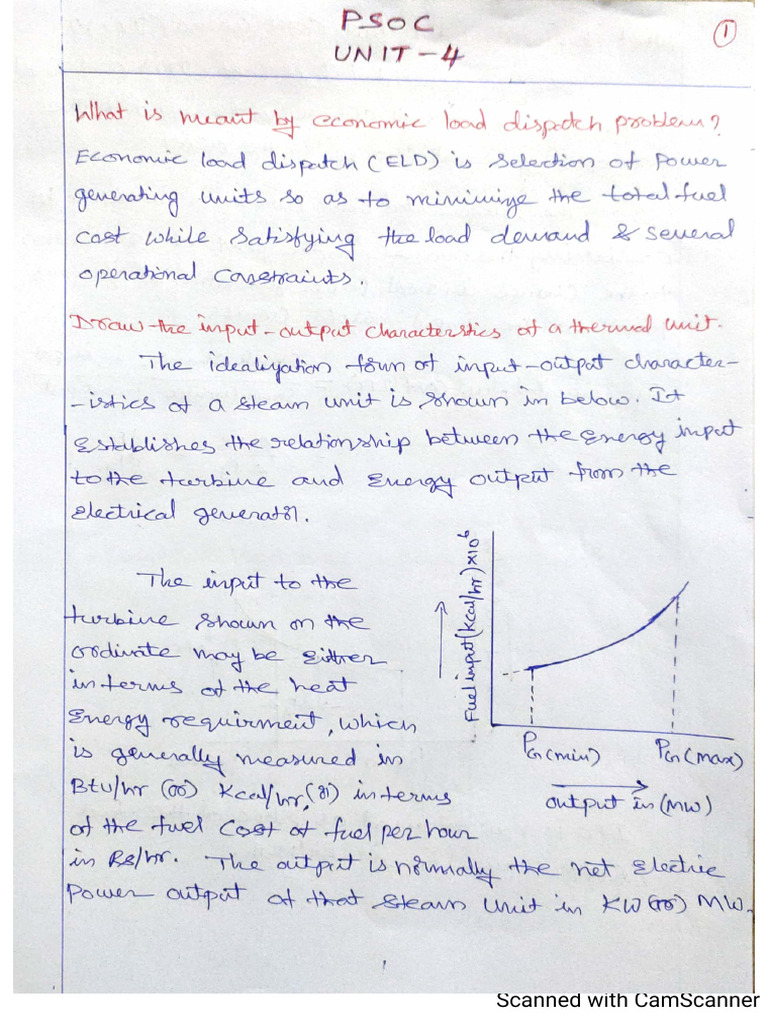 PSOC
1
UNIT-4
What is meant by economic load dispatch problem?
Economic load dispatch (ELD) is selection of power
generating units so as to minimize the total fuel
cost while satisfying the load demand & several
operational constraints.
Draw the input-output characteristics of a thermal unit.
The idealization form of input-output character-
-istics of a steam unit is shown in below. It
establishes the relationship between the energy input
to the turbine and energy output from the
electrical generator.
The input to the
turbine shown on the
ordinate may be either
in terms of the heat
energy requirment, which
is generally measured in
Btu/hr (or) Kcal/hr, (or) in terms
of the fuel cost of fuel per hour
in Rs/hr. The output is normally the net electric
power output of that steam unit in KW (or) MW.
Fuel input (Kcal/hr) x10^6
PG(min) PG(max)
output in (MW)
Scanned with CamScanner